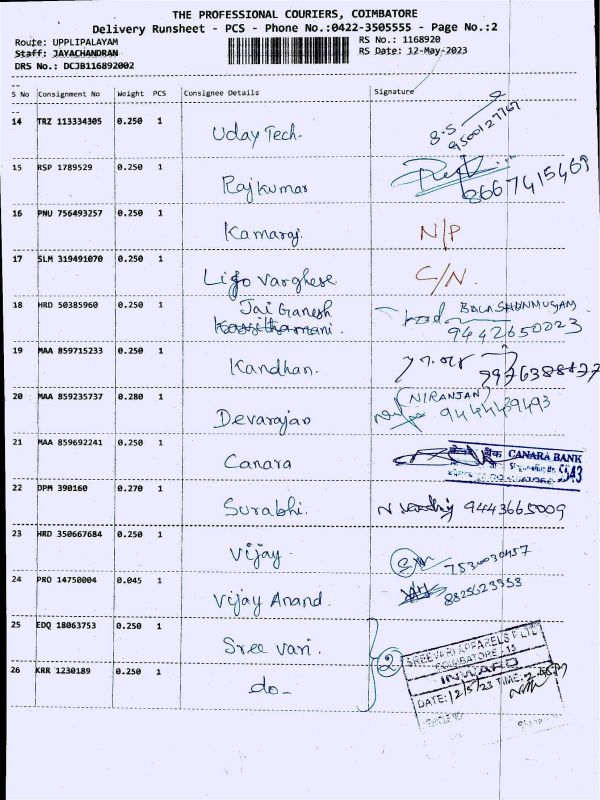 THE PROFESSIONAL COURIERS, COIMBATORE
Delivery Runsheet - PCS - Phone No.:0422-3505555 - Page No.:2
Route: UPPLIPALAYAM RS No.: 1168920
Staff: JAYACHANDRAN RS Date: 12-May-2023
DRS No.: DCJB116892002
S No Consignment No Weight PCS Consignee Details Signature
14 TRZ 113334305 0.250 1 Uday Tech. 8.5 9500127767
15 RSP 1789529 0.250 1 Rajkumar 8667415469
16 PNU 756493257 0.250 1 Kamaraj. N/P
17 SLM 319491070 0.250 1 Lijo Varghese C/N.
18 HRD 50385960 0.250 1 Jai Ganesh BALASHUNMUGAM
9442650023
19 MAA 859715233 0.250 1 Kandhan.
20 MAA 859235737 0.280 1 Devarajan (NIRANJAN)
21 MAA 859692241 0.250 1 Canara CANARA BANK
22 DPM 390160 0.270 1 Surabhi. 9443665009
23 HRD 350667684 0.250 1 Vijay 7530030457
24 PRO 14750004 0.045 1 Vijay Anand. 8825623353
25 EDQ 18063753 0.250 1 Sree vari. 2
26 KRR 1230189 0.250 1 do-
SREEVARI APPARELS P LTD
COIMBATORE - 15
INWARD
DATE: 12/5/23 TIME: